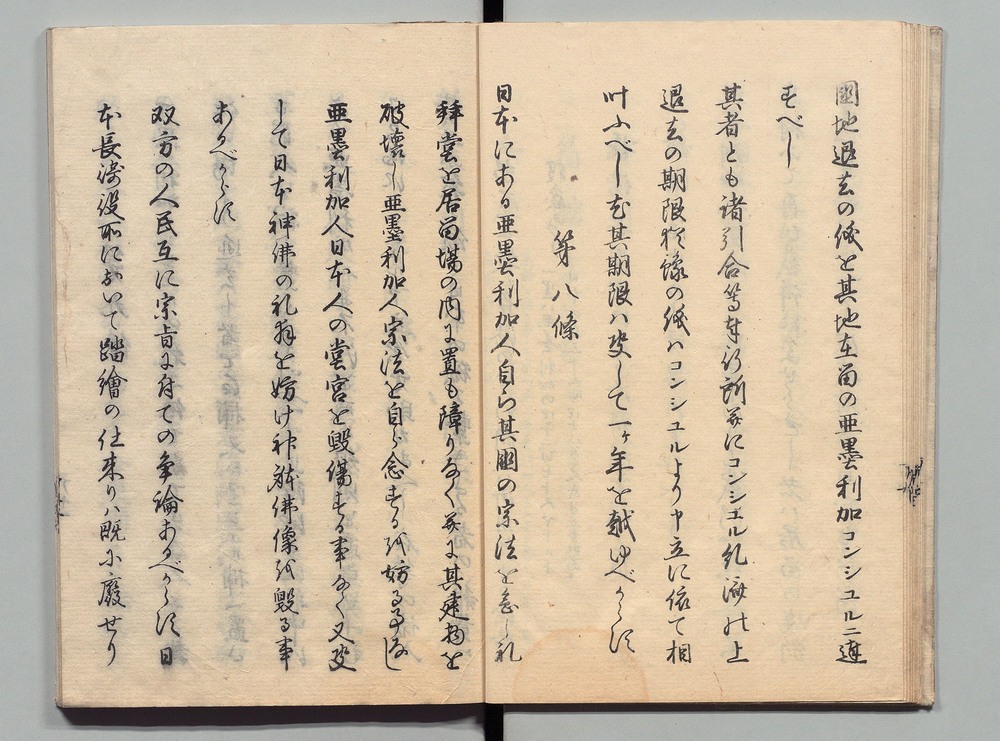 國地退去の儀を其地在留の亜墨利加コンシユルニ達
すべし
其者とも諸引合等奉行所并にコンシユル糺済の上
退去の期限猶豫の儀ハコンシユルより申立に依て相
叶ふべし尤其期限ハ決して一ヶ年を越ゆべからす
第八條
日本にある亜墨利加人自ら其國の宗法を念し礼
拝堂を居留場の内に置も障りなく并に其建物を
破壊し亜墨利加人宗法を自ら念する越妨る事なし
亜墨利加人日本人の堂宮を毀傷する事なく又決
して日本神佛の礼拝を妨け神躰佛像越毀る事
あるべからす
双方の人民互に宗旨に付ての争論あるべからす日
本長崎役所において踏繪の仕来りハ既に廢せり